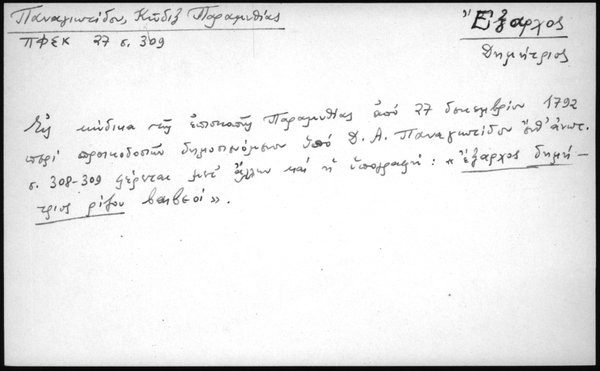 Παναγιωτίδου, Κῶδιξ Παραμυθίας
ΠΦΣΚ 27 σ. 309
Ἔξαρχος
Δημήτριος
Εἰς κώδικα τῆς ἐπισκοπῆς Παραμυθίας ἀπό 27 δεκεμβρίου 1792
περί προικοδοσιῶν δημοσιευόμενον ὑπό Δ. Α. Παναγιωτίδου ἔνθ' ἀνωτ.
σ. 308-309 φέρεται μετ' ἄλλων καί ἡ ὑπογραφή: «ἔξαρχος δημή-
τριος ρίζου βεβεοῖ».